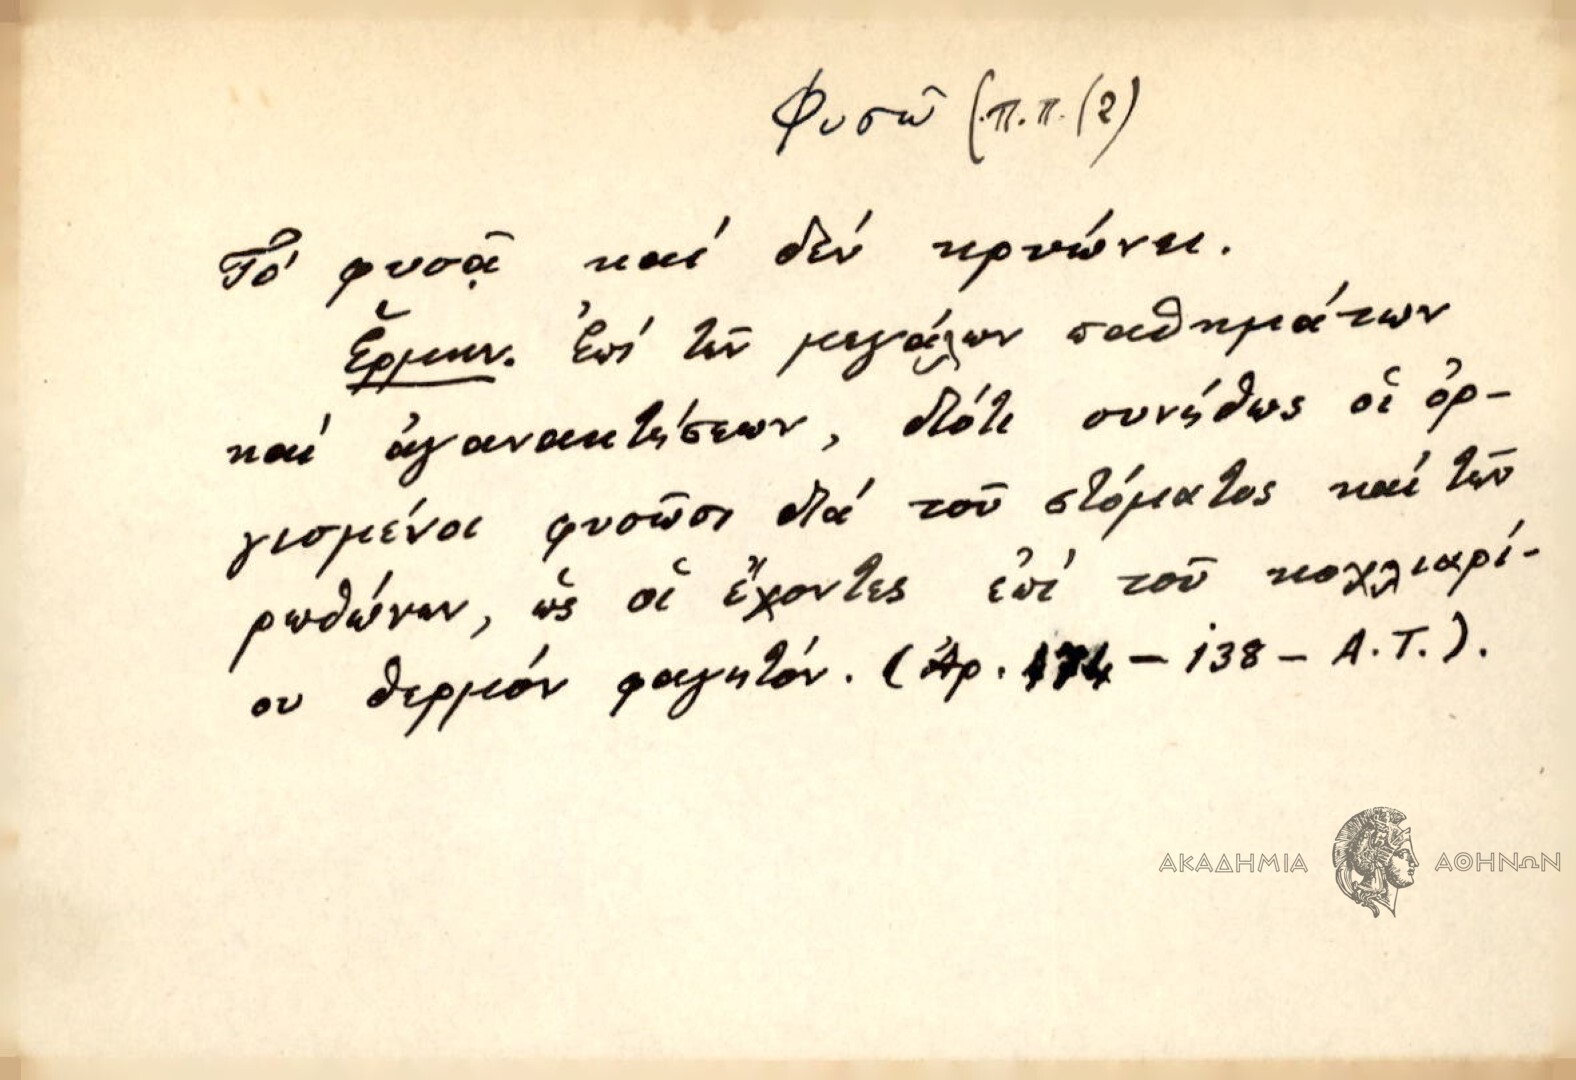 Φυσῶ (π.π. (2)
Τό φυσᾷ καί δέν κρυώνει.
Ἑρμην. Ἐπί τῶν μεγάλων παθημάτων
καί ἀγανακτήσεων, διότι συνήθως οἱ ὀρ-
γισμένοι φυσῶσι διά τοῦ στόματος καί τῶν
ρωθώνων, ὡς οἱ ἔχοντες ἐπί τοῦ κοχλιαρί-
ου θερμόν φαγητόν. (Ἀρ. 174 – 138 – Α.Τ.).
ΑΚΑΔΗΜΙΑ ΑΘΗΝΩΝ